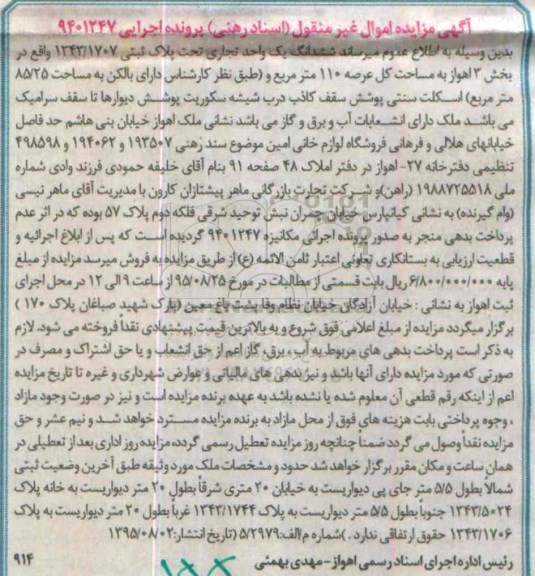 آگهی مزایده اموال غیر منقول (اسناد رهنی) پرونده اجرایی ۹۴۰۱۲۴۷
بدین وسیله به اطلاع عموم میرساند ششدانگ یک واحد تجاری تحت پلاک ثبتی ۱۳۴۳/۱۷۰۷ واقع در
بخش ۳ اهواز به مساحت کل عرصه ۱۱۰ متر مربع و (طبق نظر کارشناس دارای بالکن به مساحت ۸۵/۲۵
متر مربع) اسکلت سنتی پوشش سقف کاذب درب شیشه سکوریت پوشش دیوارها تا سقف سرامیک
می باشد ملک دارای انشعابات آب و برق و گاز می باشد نشانی ملک اهواز خیابان بنی هاشم حد فاصل
خیابانهای هلالی و فرهانی فروشگاه لوازم خانی امین موضوع سند رهنی ۱۹۳۵۰۷ و ۱۹۴۰۶۲ و ۴۹۸۵۹۸
تنظیمی دفترخانه ۲۷- اهواز در دفتر املاک ۴۸ صفحه ۹۱ بنام آقای خلیفه حمودی فرزند وادی شماره
ملی ۱۹۸۸۷۲۵۵۱۸ (راهن) و شرکت تجارت بازرگانی ماهر پیشتازان کارون با مدیریت آقای ماهر نیسی
(وام گیرنده) به نشانی کیانپارس خیابان چمران نبش توحید شرقی فلکه دوم پلاک ۵۷ بوده که در اثر عدم
پرداخت بدهی منجر به صدور پرونده اجرائی مکانیزه ۹۴۰۱۲۴۷ گردیده است که پس از ابلاغ اجرائیه و
قطعیت ارزیابی به بستانکاری تعاونی اعتبار ثامن الائمه (ع) از طریق مزایده به فروش میرسد مزایده از مبلغ
پایه ۶/۸۰۰/۰۰۰/۰۰۰ ریال بابت قسمتی از مطالبات در مورخ ۹۵/۰۸/۲۵ از ساعت ۹ الی ۱۲ در محل اجرای
ثبت اهواز به نشانی : خیابان آزادگان خیابان نظام وفا پشت باغ معین (پارک شهید صباغان پلاک ۱۷۰ )
برگزار میگردد مزایده از مبلغ اعلامی فوق شروع و به بالاترین قیمت پیشنهادی نقداً فروخته می شود. لازم
به ذکر است پرداخت بدهی های مربوط به آب ، برق، گاز اعم از حق انشعاب و یا حق اشتراک و مصرف در
صورتی که مورد مزایده دارای آنها باشد و نیز بدهی های مالیاتی و عوارض شهرداری و غیره تا تاریخ مزایده
اعم از اینکه رقم قطعی آن معلوم شده یا نشده باشد به عهده برنده مزایده است و نیز در صورت وجود مازاد
، وجوه پرداختی بابت هزینه های فوق از محل مازاد به برنده مزایده مسترد خواهد شد و نیم عشر و حق
مزایده نقداً وصول می گردد ضمناً چنانچه روز مزایده تعطیل رسمی گردد، مزایده روز اداری بعد از تعطیلی در
همان ساعت و مکان مقرر برگزار خواهد شد حدود و مشخصات ملک مورد وثیقه طبق آخرین وضعیت ثبتی
شمالاً بطول ۵/۵ متر جای پی دیواریست به خیابان ۲۰ متری شرقاً بطول ۲۰ متر دیواریست به خانه پلاک
۱۳۴۳/۵۰۲۴ جنوباً بطول ۵/۵ متر دیواریست به پلاک ۱۳۴۳/۱۷۴۴ غرباً بطول ۲۰ متر دیواریست به پلاک
۱۳۴۳/۱۷۰۶ حقوق ارتفاقی ندارد. )شماره م/الف:۵/۲۹۷۹ (تاریخ انتشار:۱۳۹۵/۰۸/۰۲
رئیس اداره اجرای اسناد رسمی اهواز - مهدی بهمنی ۹۱۴